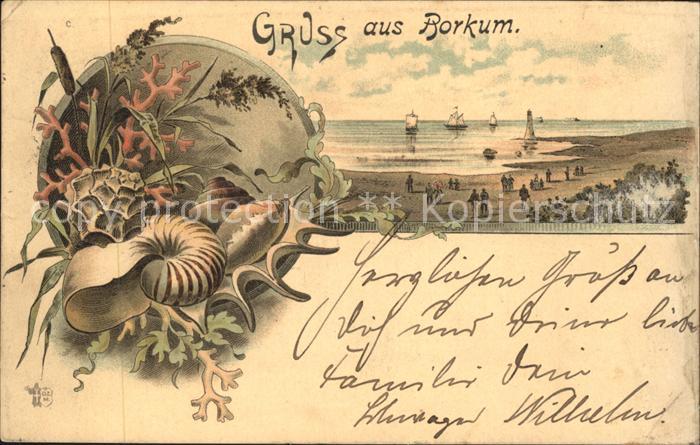 C.
GRUSS aus Borkum.
copy protection ** Kopierschutz
Herzlichen Gruß an
Dich und Deine liebe
Familie Dein
Schwager Wilhelm.